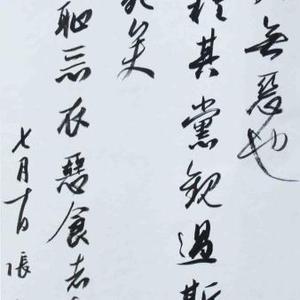 無惡也
其黨觀過斯
矣
恥惡衣惡食者
七月十日張